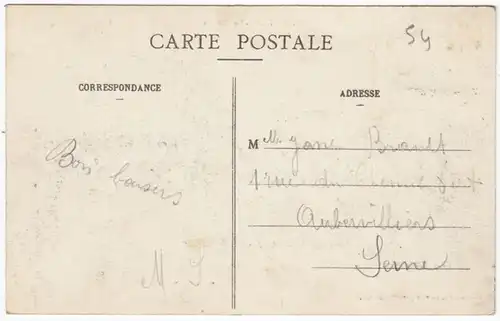 CARTE POSTALE
54
CORRESPONDANCE
ADRESSE
Bons baisers
M. S.
Mlle Jane Brandt
1 rue du Chemin
Aubervilliers
Seine